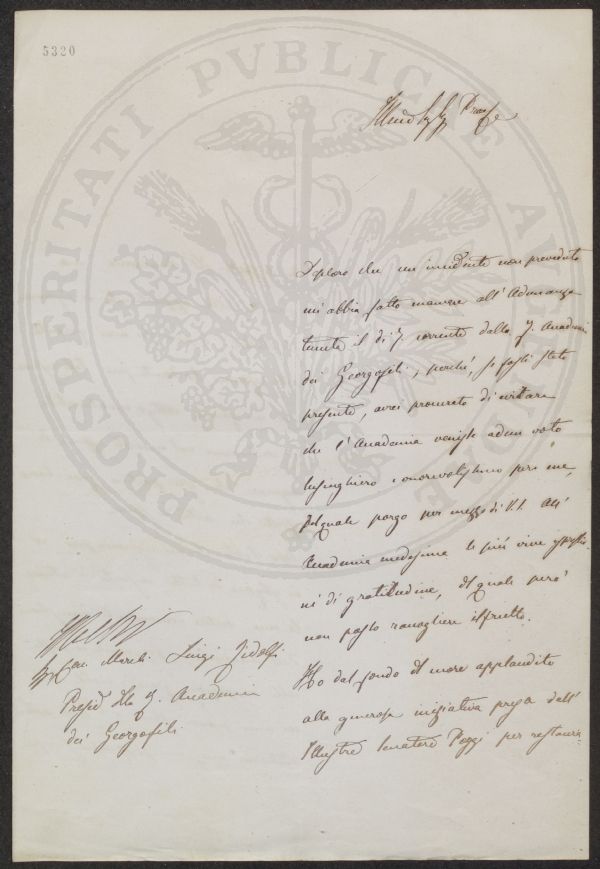 5320
PROSPERITATI PVBLICAE AVGENDAE
Illmo Sig Sig
Deploro che un'incidente non preveduto
mi abbia fatto mancare all'Adunanza
tenuta il di 7. corrente dalla R. Accademia
dei Georgofili, perché, se fossi stato
presente, avrei procurato di evitare
che l'Accademia venisse ad un voto
lusinghiero e onorevolissimo per me,
pel quale porgo per mezzo di V.S. all'
Accademia medesima le più vive espressio-
ni di gratitudine, del quale però
non posso raccogliere il frutto.
Ho dal fondo del cuore applaudito
alla generosa iniziativa presa dall'
Illustre Senatore Poggi per restaura
March. Luigi Ridolfi
Presid della R. Accademia
dei Georgofili